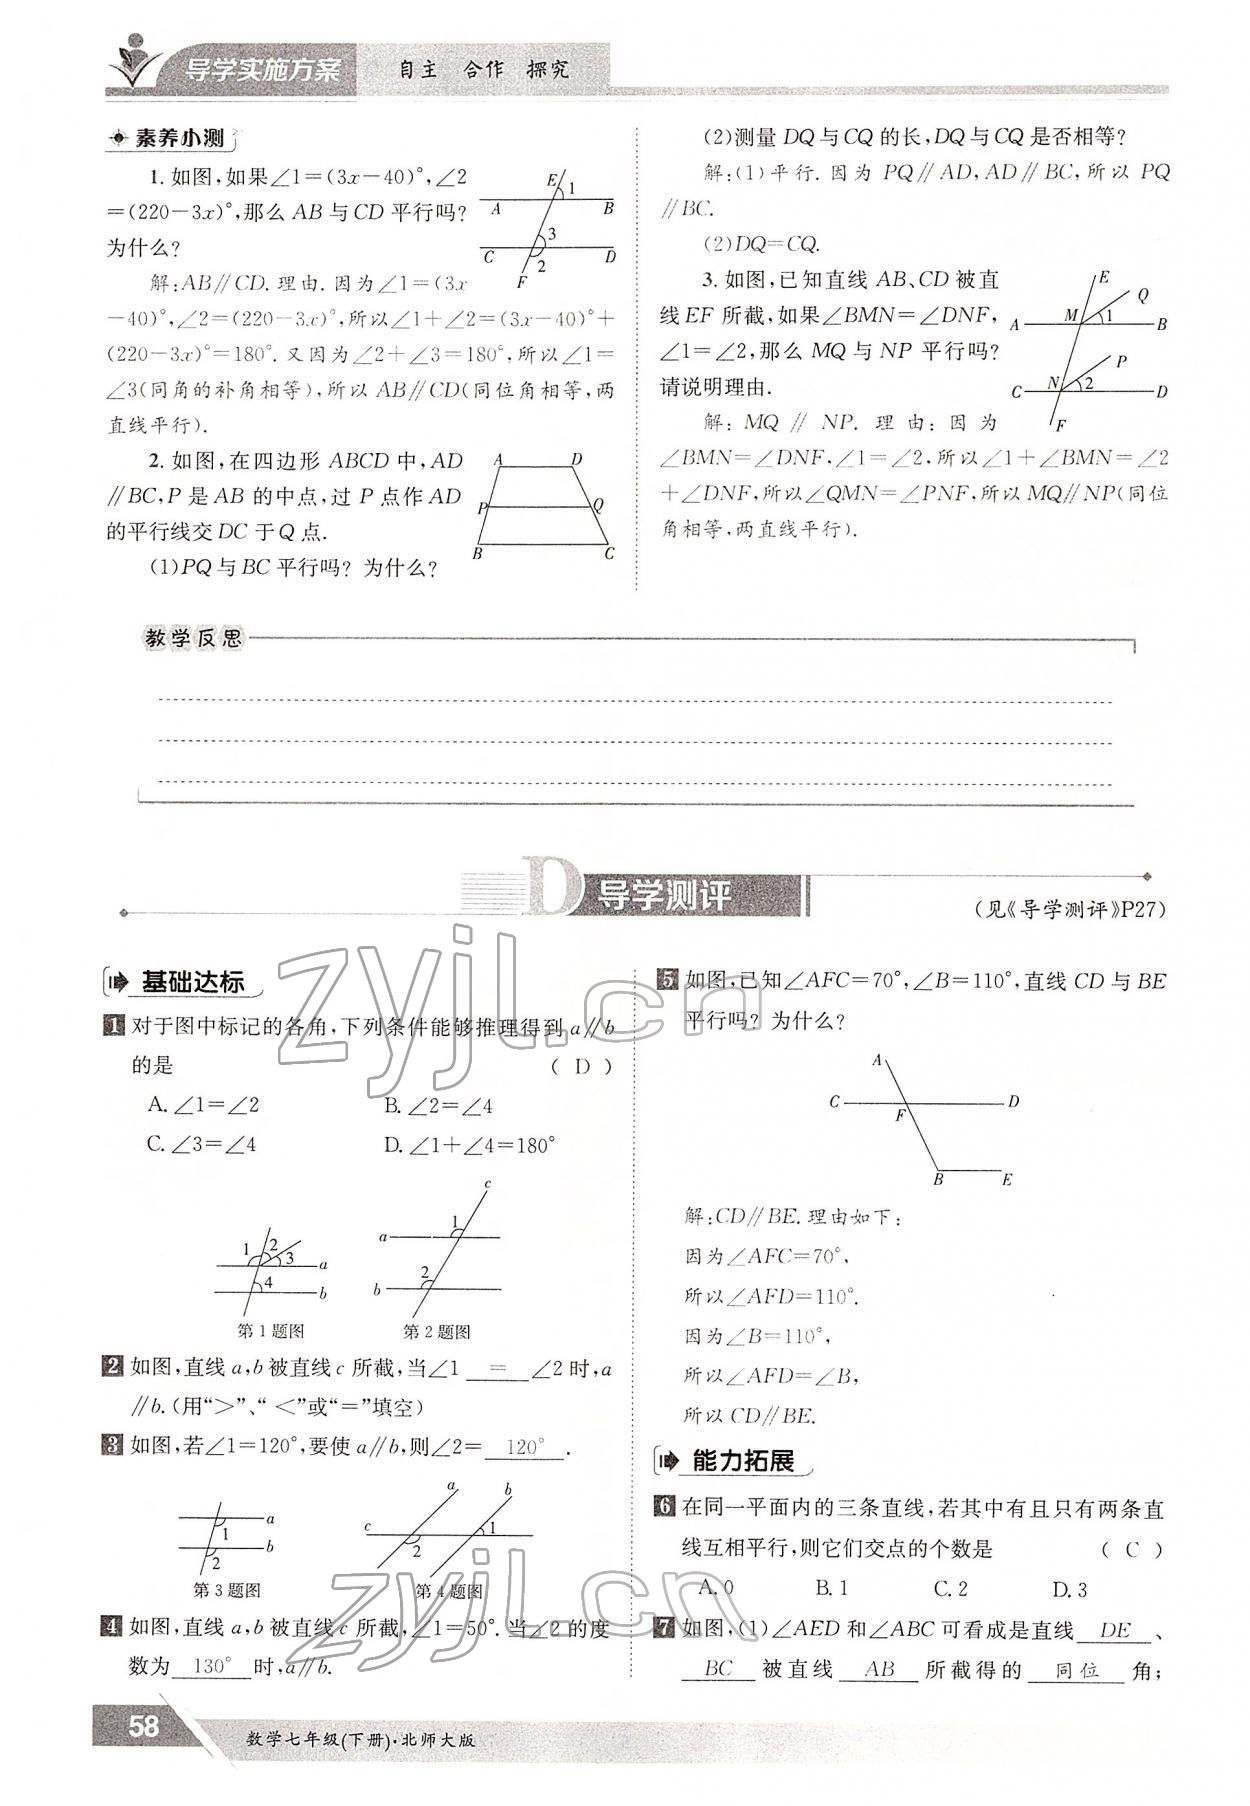 导学实施方案
自主 合作 探究
素养小测
1. 如图,如果∠1=(3x-40)°,∠2
=(220-3x)°,那么 AB 与 CD 平行吗?
为什么?
E 1
A B
3
C D
2
F
解:AB∥CD. 理由. 因为∠1=(3x
-40)°,∠2=(220-3x)°,所以∠1+∠2=(3x-40)°+
(220-3x)°=180°. 又因为∠2+∠3=180°,所以∠1=
∠3(同角的补角相等),所以 AB∥CD(同位角相等,两
直线平行).
2. 如图,在四边形 ABCD 中,AD
∥BC,P 是 AB 的中点,过 P 点作 AD
的平行线交 DC 于 Q 点.
A D
P Q
B C
(1)PQ 与 BC 平行吗? 为什么?
(2)测量 DQ 与 CQ 的长,DQ 与 CQ 是否相等?
解:(1)平行. 因为 PQ∥AD,AD∥BC,所以 PQ
∥BC.
(2)DQ=CQ.
3. 如图,已知直线 AB、CD 被直
线 EF 所截,如果∠BMN=∠DNF,
∠1=∠2,那么 MQ 与 NP 平行吗?
请说明理由.
E Q
M 1
A B
P
N 2
C D
F
解: MQ ∥ NP. 理由:因为
∠BMN=∠DNF,∠1=∠2,所以∠1+∠BMN=∠2
+∠DNF,所以∠QMN=∠PNF,所以 MQ∥NP(同位
角相等,两直线平行).
教学反思
D 导学测评
(见《导学测评》P27)
基础达标
1 对于图中标记的各角,下列条件能够推理得到 a∥b
的是 ( D )
A. ∠1=∠2 B. ∠2=∠4
C. ∠3=∠4 D. ∠1+∠4=180°
1 2 3 a
4 b
第 1 题图
c
1
a
2
b
第 2 题图
2 如图,直线 a,b 被直线 c 所截,当∠1 = ∠2 时,a
∥b.(用“>”、“<”或“=”填空)
3 如图,若∠1=120°,要使 a∥b,则∠2= 120° .
a
1
b
2
第 3 题图
a b
c 1
2
第 4 题图
4 如图,直线 a,b 被直线 c 所截,∠1=50°. 当∠2 的度
数为 130° 时,a∥b.
5 如图,已知∠AFC=70°,∠B=110°,直线 CD 与 BE
平行吗? 为什么?
A
C D
F
B E
解:CD∥BE. 理由如下:
因为∠AFC=70°,
所以∠AFD=110°.
因为∠B=110°,
所以∠AFD=∠B,
所以 CD∥BE.
能力拓展
6 在同一平面内的三条直线,若其中有且只有两条直
线互相平行,则它们交点的个数是 ( C )
A. 0 B. 1 C. 2 D. 3
7 如图,(1)∠AED 和∠ABC 可看成是直线 DE 、
BC 被直线 AB 所截得的 同位 角;
58
数学七年级(下册)·北师大版
zyjl.cn
zyjl.cn